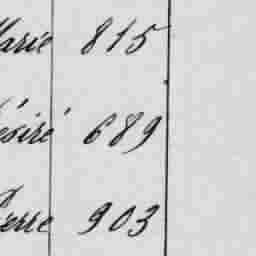 Marie 815
ésiré 689
Pierre 903